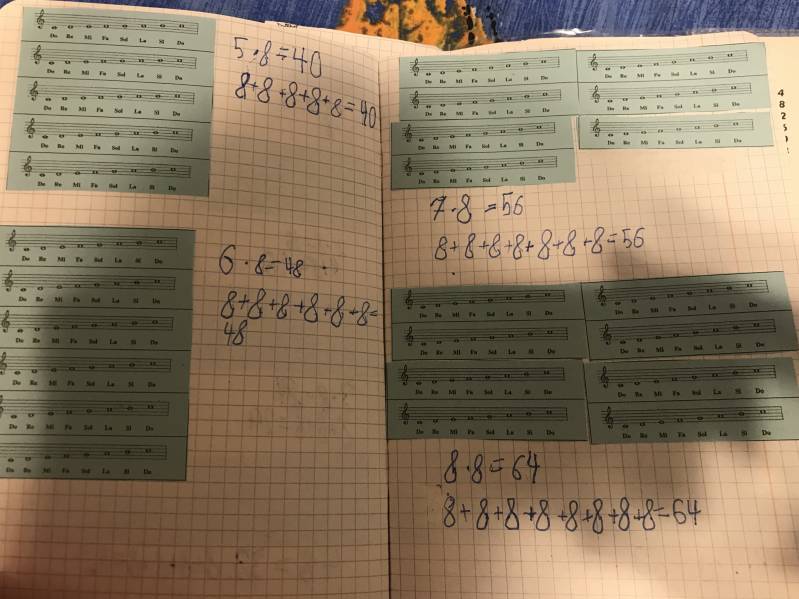 Do Re Mi Fa Sol La Si Do
Do Re Mi Fa Sol La Si Do
Do Re Mi Fa Sol La Si Do
Do Re Mi Fa Sol La Si Do
Do Re Mi Fa Sol La Si Do
5·8=40
8+8+8+8+8=40
Do Re Mi Fa Sol La Si Do
Do Re Mi Fa Sol La Si Do
Do Re Mi Fa Sol La Si Do
Do Re Mi Fa Sol La Si Do
Do Re Mi Fa Sol La Si Do
Do Re Mi Fa Sol La Si Do
6·8=48
8+8+8+8+8+8=
48
Do Re Mi Fa Sol La Si Do
Do Re Mi Fa Sol La Si Do
Do Re Mi Fa Sol La Si Do
Do Re Mi Fa Sol La Si Do
Do Re Mi Fa Sol La Si Do
Do Re Mi Fa Sol La Si Do
Do Re Mi Fa Sol La Si Do
7·8=56
8+8+8+8+8+8+8=56
Do Re Mi Fa Sol La Si Do
Do Re Mi Fa Sol La Si Do
Do Re Mi Fa Sol La Si Do
Do Re Mi Fa Sol La Si Do
Do Re Mi Fa Sol La Si Do
Do Re Mi Fa Sol La Si Do
Do Re Mi Fa Sol La Si Do
Do Re Mi Fa Sol La Si Do
8·8=64
8+8+8+8+8+8+8+8=64
4
8
2